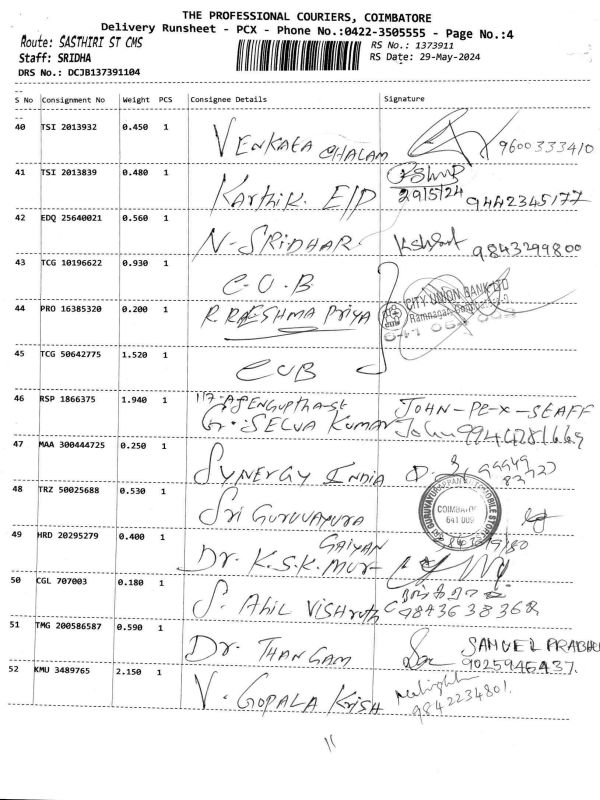 THE PROFESSIONAL COURIERS, COIMBATORE
Delivery Runsheet - PCX - Phone No.:0422-3505555 - Page No.:4
Route: SASTHIRI ST CMS
RS No.: 1373911
Staff: SRIDHA
RS Date: 29-May-2024
DRS No.: DCJB137391104
S No Consignment No Weight PCS Consignee Details Signature
40 TSI 2013932 0.450 1 VENKATA CHALAM 9600333410
41 TSI 2013839 0.480 1 Karthik. E/P 29/5/24 9442345177
42 EDQ 25640021 0.560 1 N-SRIDHAR 9843299800
43 TCG 10196622 0.930 1 C.U.B
44 PRO 16385320 0.200 1 R. RAESHMA Priya CITY UNION BANK LTD
Ramnagar, Coimbatore-9
45 TCG 50642775 1.520 1 CUB
46 RSP 1866375 1.940 1 117-A SENGUPTHA-St JOHN-Pe-x-STAFF
G. SELVA KUMAR John
47 MAA 300444725 0.250 1 SYNERGY INDIA
48 TRZ 50025688 0.530 1 Sri GURUVAYURA COIMBATORE
641 009
49 HRD 20295279 0.400 1 Dr. K.S.K. MUR-GAIYAN
50 CGL 707003 0.180 1 S. Ahil VISHruth 9843638368
51 TMG 200586587 0.590 1 Dr. THANGAM SAMUEL PRABHU
9025946437.
52 KMU 3489765 2.150 1 V. GOPALA Krish 9842234801.